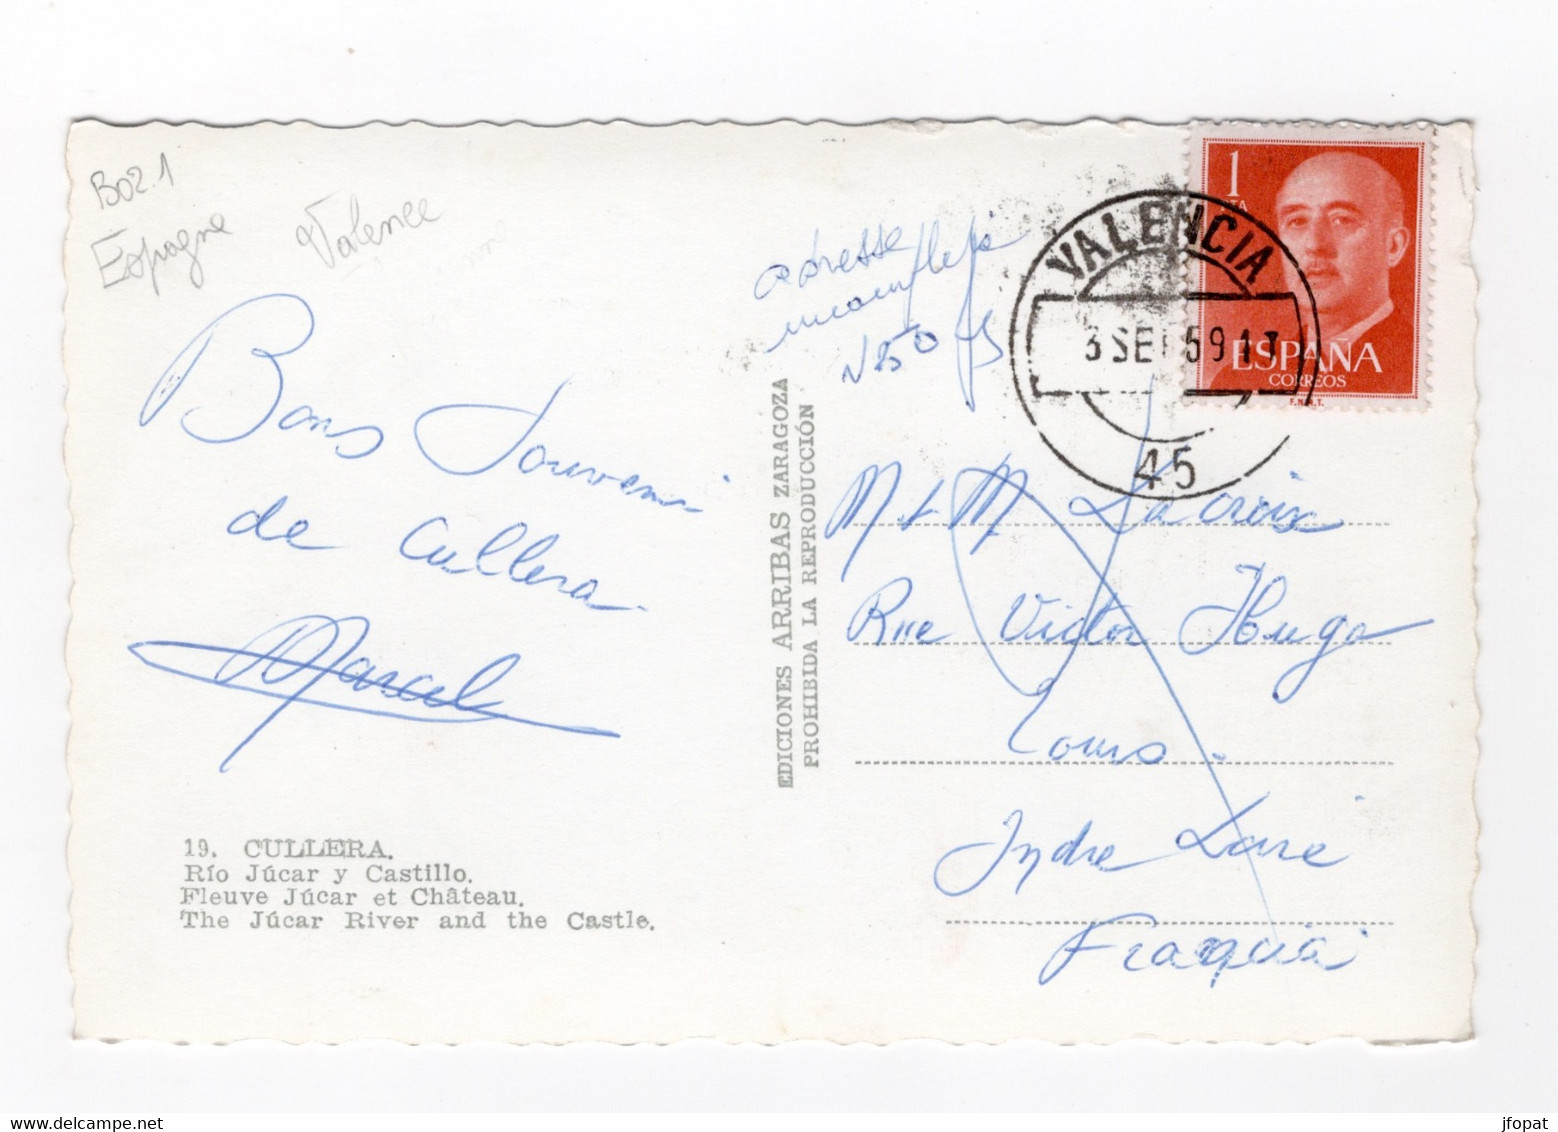 B02.1
Espagne
Valence
Bons Souvenir
de Cullera
Marcel
19. CULLERA.
Río Júcar y Castillo.
Fleuve Júcar et Château.
The Júcar River and the Castle.
EDICIONES ARRIBAS ZARAGOZA
PROHIBIDA LA REPRODUCCIÓN
adresse
incomplete
VALENCIA
3 SEP 59 17
45
1
PTA
ESPAÑA
CORREOS
F.N.M.T.
M & M Lacroix
Rue Victor Hugo
Tours.
Indre Loire
Franquia
jfopat